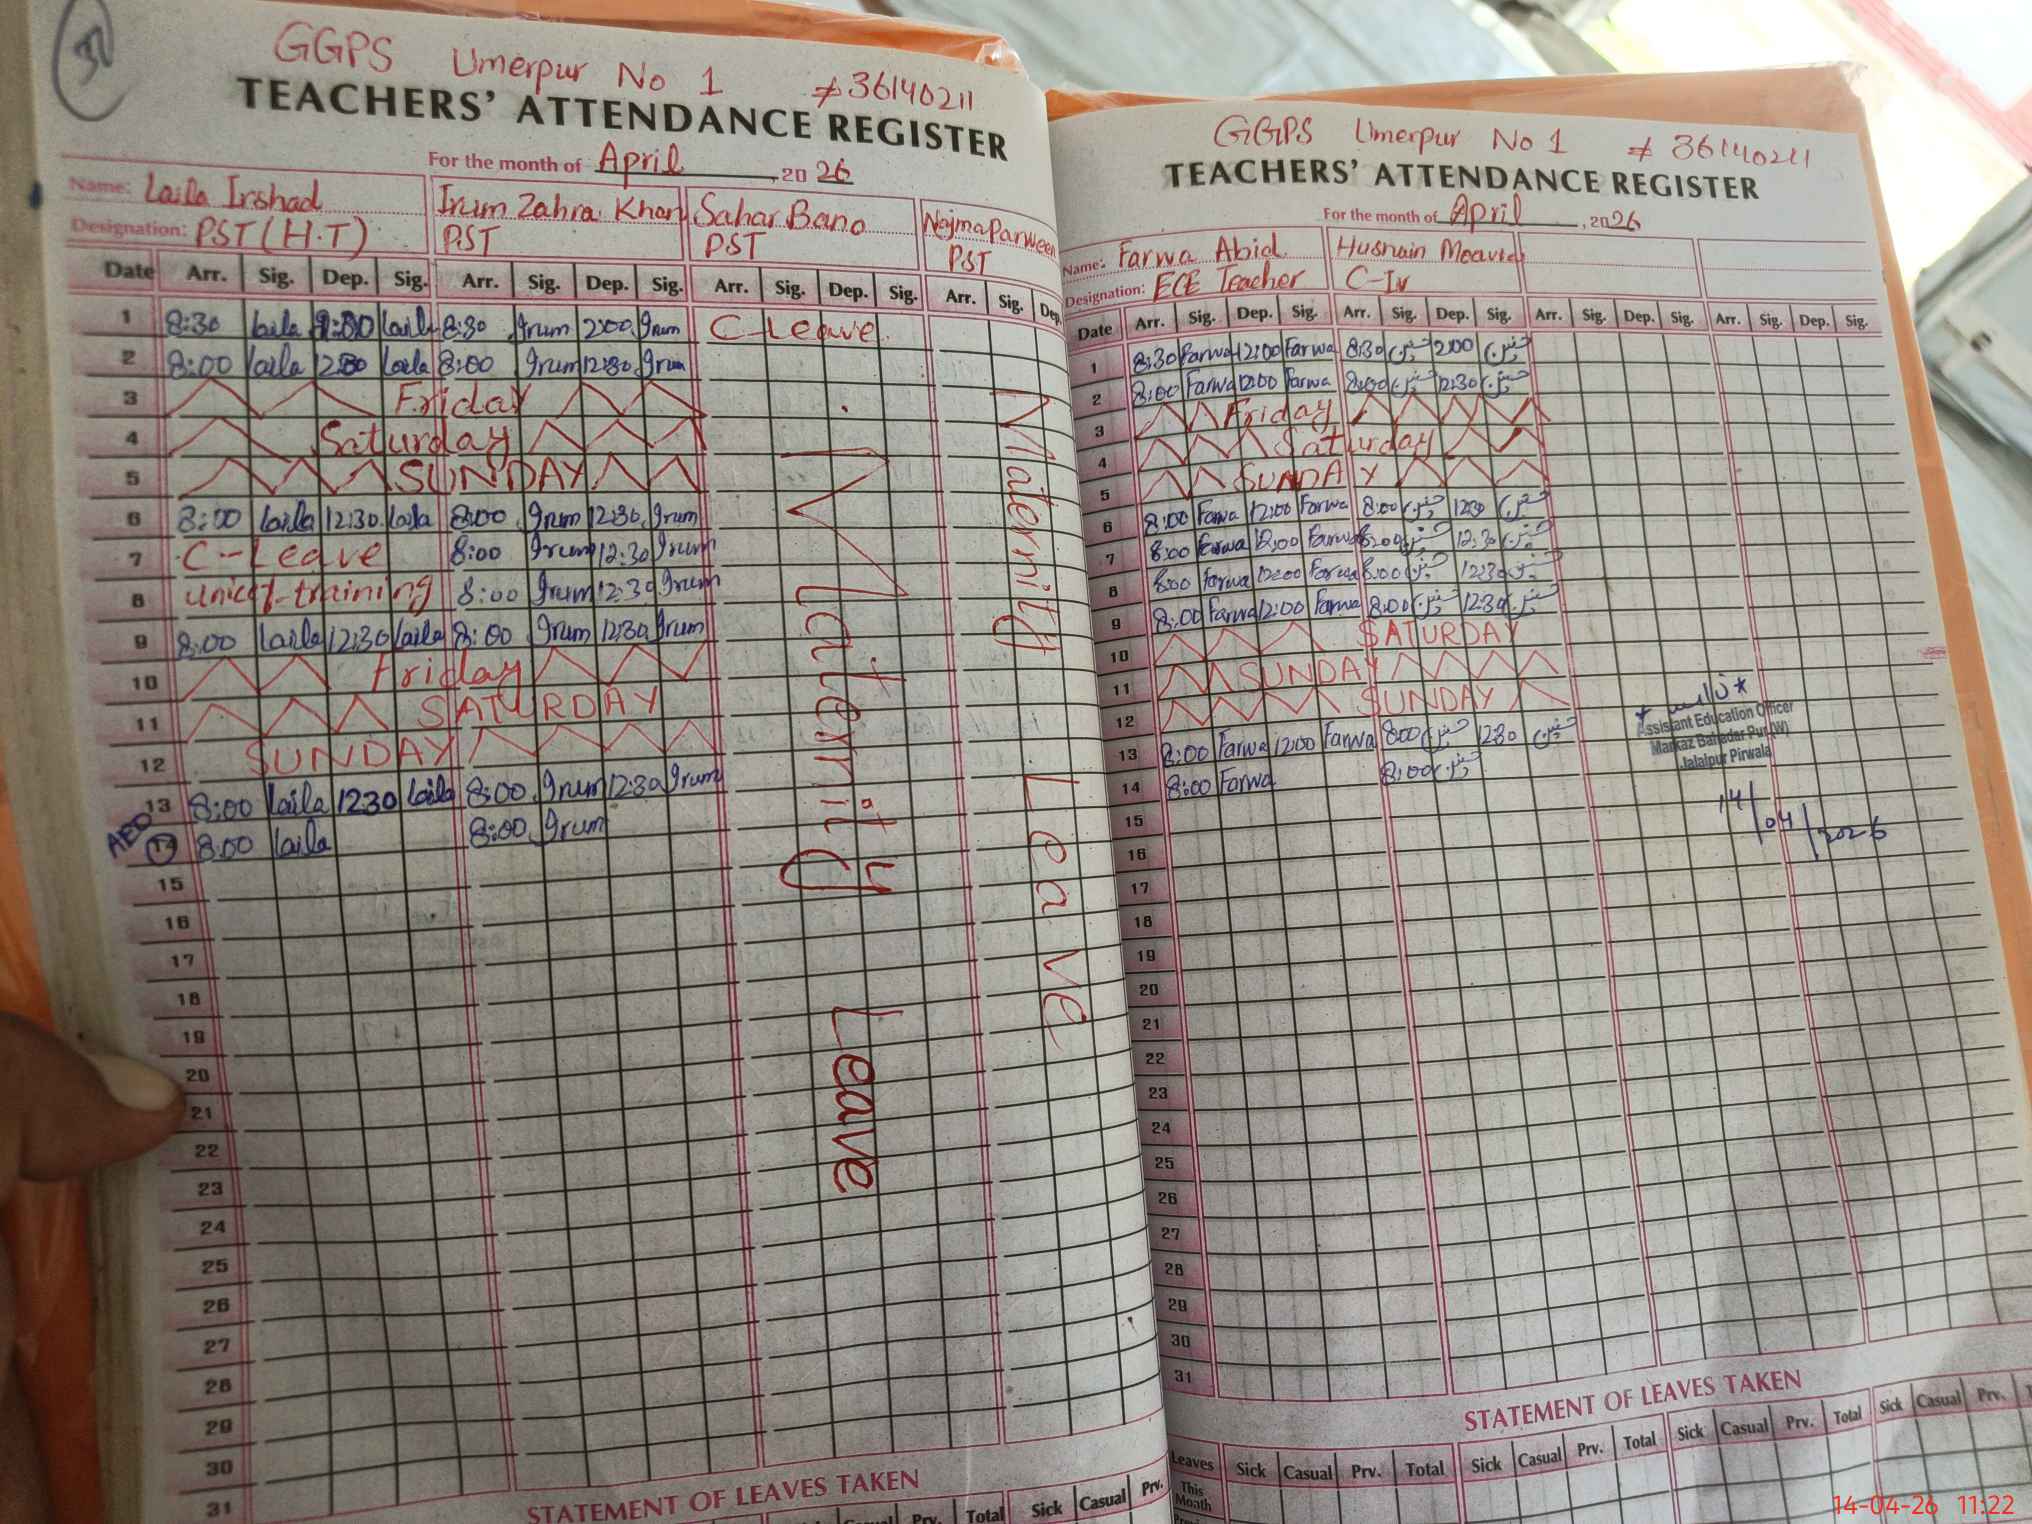 37
GGPS Umerpur No 1 ≠ 36140211
TEACHERS' ATTENDANCE REGISTER
For the month of April, 2026
Name: Laila Irshad Irum Zahra Khan Sahar Bano Najma Parween
Designation: PST (H.T) PST PST PST
Date Arr. Sig. Dep. Sig. Arr. Sig. Dep. Sig. Arr. Sig. Dep. Sig. Arr. Sig. Dep.
1 8:30 laila laila 8:30 Irum 2:00 Irum C-Leave
2 8:00 laila laila 8:00 Irum 12:30 Irum
3 Friday
4 Saturday
5 SUNDAY
6 8:00 laila 12:30 laila 8:00 Irum 12:30 Irum
7 C-Leave 8:00 Irum 12:30 Irum
8 unicef-training 8:00 Irum 12:30 Irum
9 8:00 laila 12:30 laila 8:00 Irum 12:30 Irum
10 Friday
11 SATURDAY
12 SUNDAY
13 8:00 laila 12:30 laila 8:00 Irum 12:30 Irum
AEO 14 8:00 laila 8:00 Irum
15
16
17
18
19
20
21
22
23
24
25
26
27
28
29
30
31
Maternity Leave
Maternity Leave
STATEMENT OF LEAVES TAKEN
Prv. Total Sick Casual Prv.
GGPS Umerpur No 1 ≠ 36140211
TEACHERS' ATTENDANCE REGISTER
For the month of April, 2026
Name: Farwa Abid Husnain Moavia
Designation: ECE Teacher C-IV
Date Arr. Sig. Dep. Sig. Arr. Sig. Dep. Sig. Arr. Sig. Dep. Sig. Arr. Sig. Dep. Sig.
1 8:30 Farwa 12:00 Farwa 8:30 حسنین 2:00 حسنین
2 8:00 Farwa 12:00 Farwa 8:00 حسنین 12:30 حسنین
3 Friday
4 Saturday
5 SUNDAY
6 8:00 Farwa 12:00 Farwa 8:00 حسنین 12:30 حسنین
7 8:00 Farwa 12:00 Farwa 8:00 حسنین 12:30 حسنین
8 8:00 Farwa 12:00 Farwa 8:00 حسنین 12:30 حسنین
9 8:00 Farwa 12:00 Farwa 8:00 حسنین 12:30 حسنین
10 SATURDAY
11 SUNDAY
12 SUNDAY
13 8:00 Farwa 12:00 Farwa 8:00 حسنین 12:30 حسنین
14 8:00 Farwa 8:00 حسنین
15
16
17
18
19
20
21
22
23
24
25
26
27
28
29
30
31
Assistant Education Officer
Markaz Bahadar Pur (W)
Jalalpur Pirwala
14/04/2026
STATEMENT OF LEAVES TAKEN
Leaves Sick Casual Prv. Total Sick Casual Prv. Total Sick Casual Prv. Total Sick Casual Prv.
This Month
14-04-26 11:22